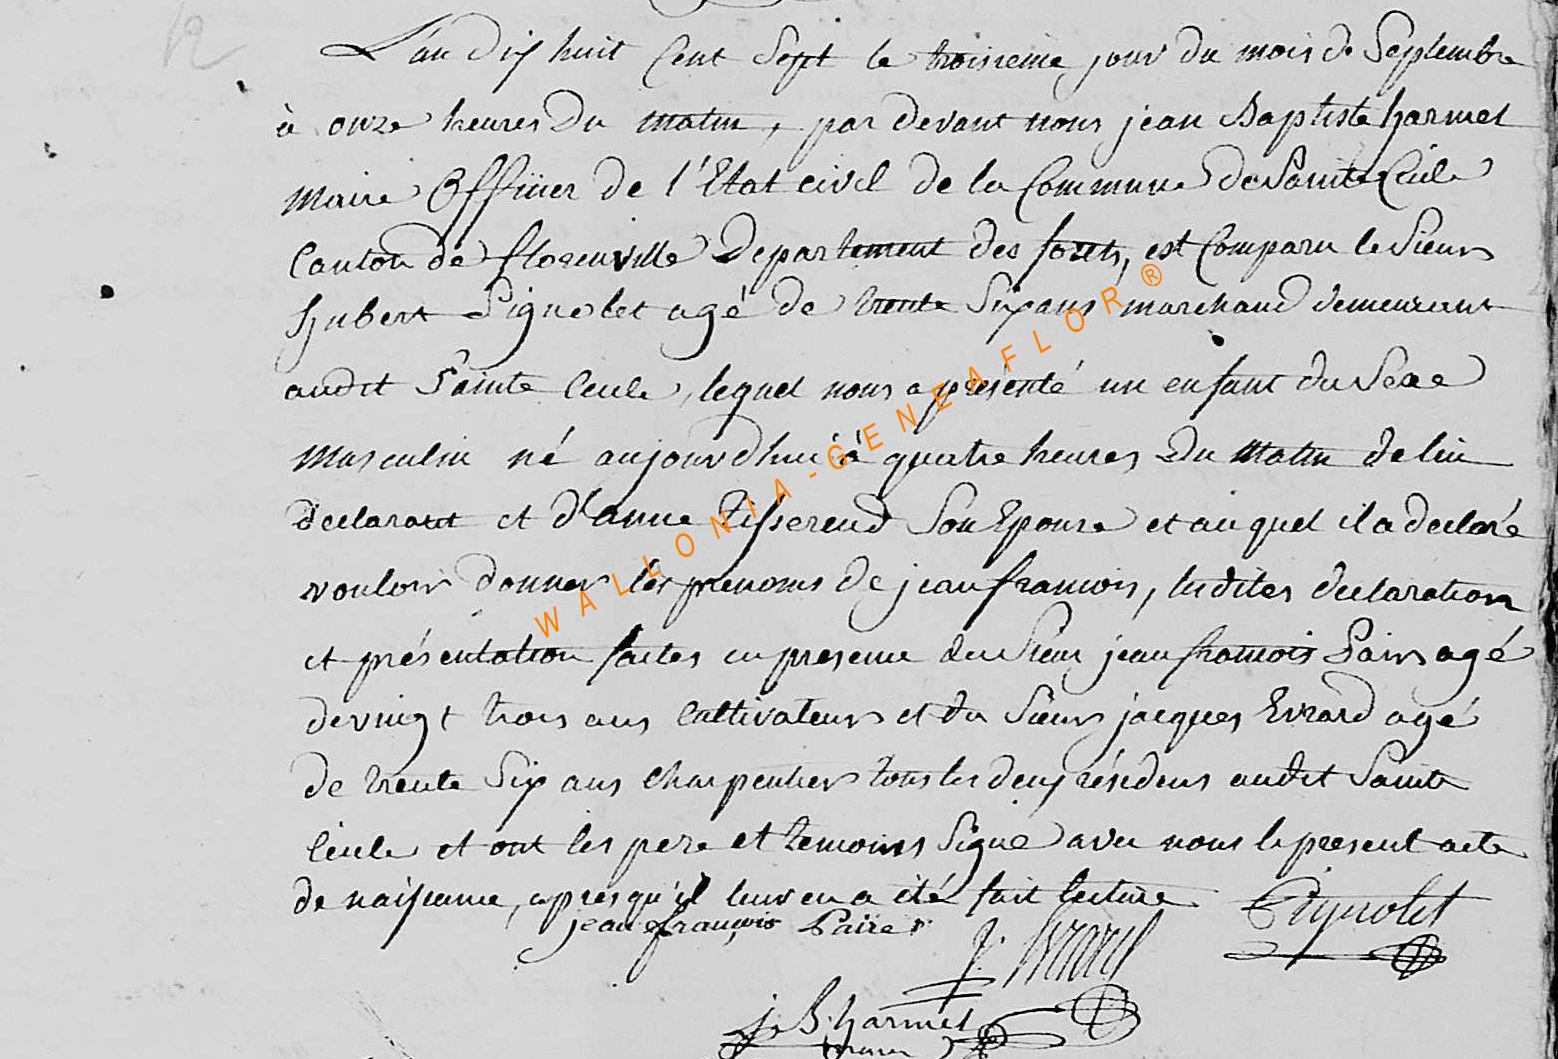 12
L'an dix huit Cent Sept le troisieme jour du mois de Septembre
à onze heures du matin, par devant nous jean Baptiste harmel
maire Officier de l'Etat civil de la Commune de Sainte Cecile
Canton de florenville Departement des forets, est Comparu le Sieur
hubert Pignolet agé de trente Six ans marchand demeurant
audit Sainte Cecile, lequel nous a présenté un enfant du Sexe
masculin né aujourd'hui à quatre heures du matin de lui
declarant et d'anne Tisserend Son Epouse et au quel il a declaré
vouloir donner les prenoms de jean francois, lesdites declaration
et présentation faites en presence du Sieur jean francois Pairs agé
de vingt trois ans Cultivateur et du Sieur jacques Evrard agé
de trente Six ans Charpentier tous les deux résidens audit Sainte
Cecile et ont les pere et temoins Signé avec nous le present acte
de naissance, apres qu'il leur en a été fait lecture
Pignolet
jean françois
J. Evrard
J. B. harmel
maire
WALLONIA-GENEAFLOR®